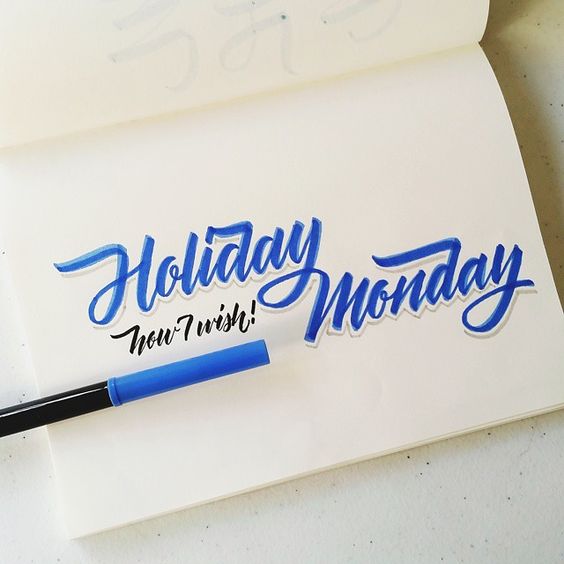 Holiday
Monday
how I wish!